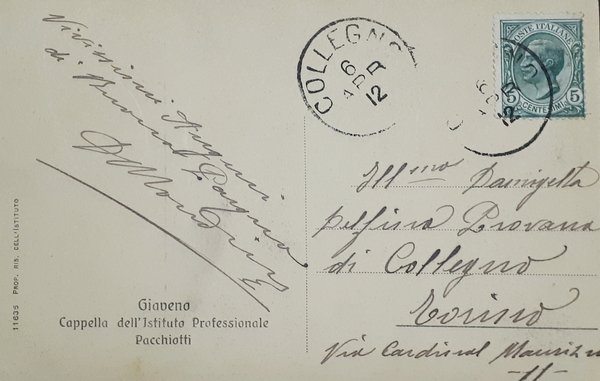 Vivissimi Auguri
di Buona Pasqua
11635 PROP. RIS. DELL'ISTITUTO
Giaveno
Cappella dell'Istituto Professionale
Pacchiotti
COLLEGNO
6
APR
12
POSTE ITALIANE
5 CENTESIMI 5
6
APR
12
Ill.mo Damigella
Delfina Provana
di Collegno
Torino
Via Cardinal Maurizio
-11-